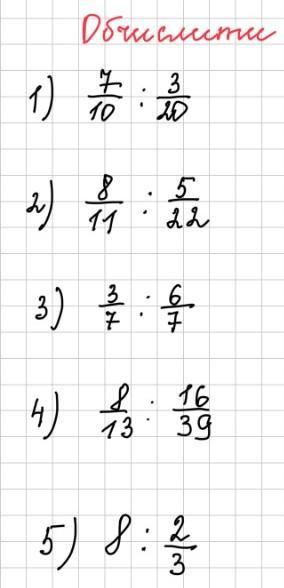 Обчислити
1) 7/10 : 3/20
2) 8/11 : 5/22
3) 3/7 : 6/7
4) 8/13 : 16/39
5) 8 : 2/3